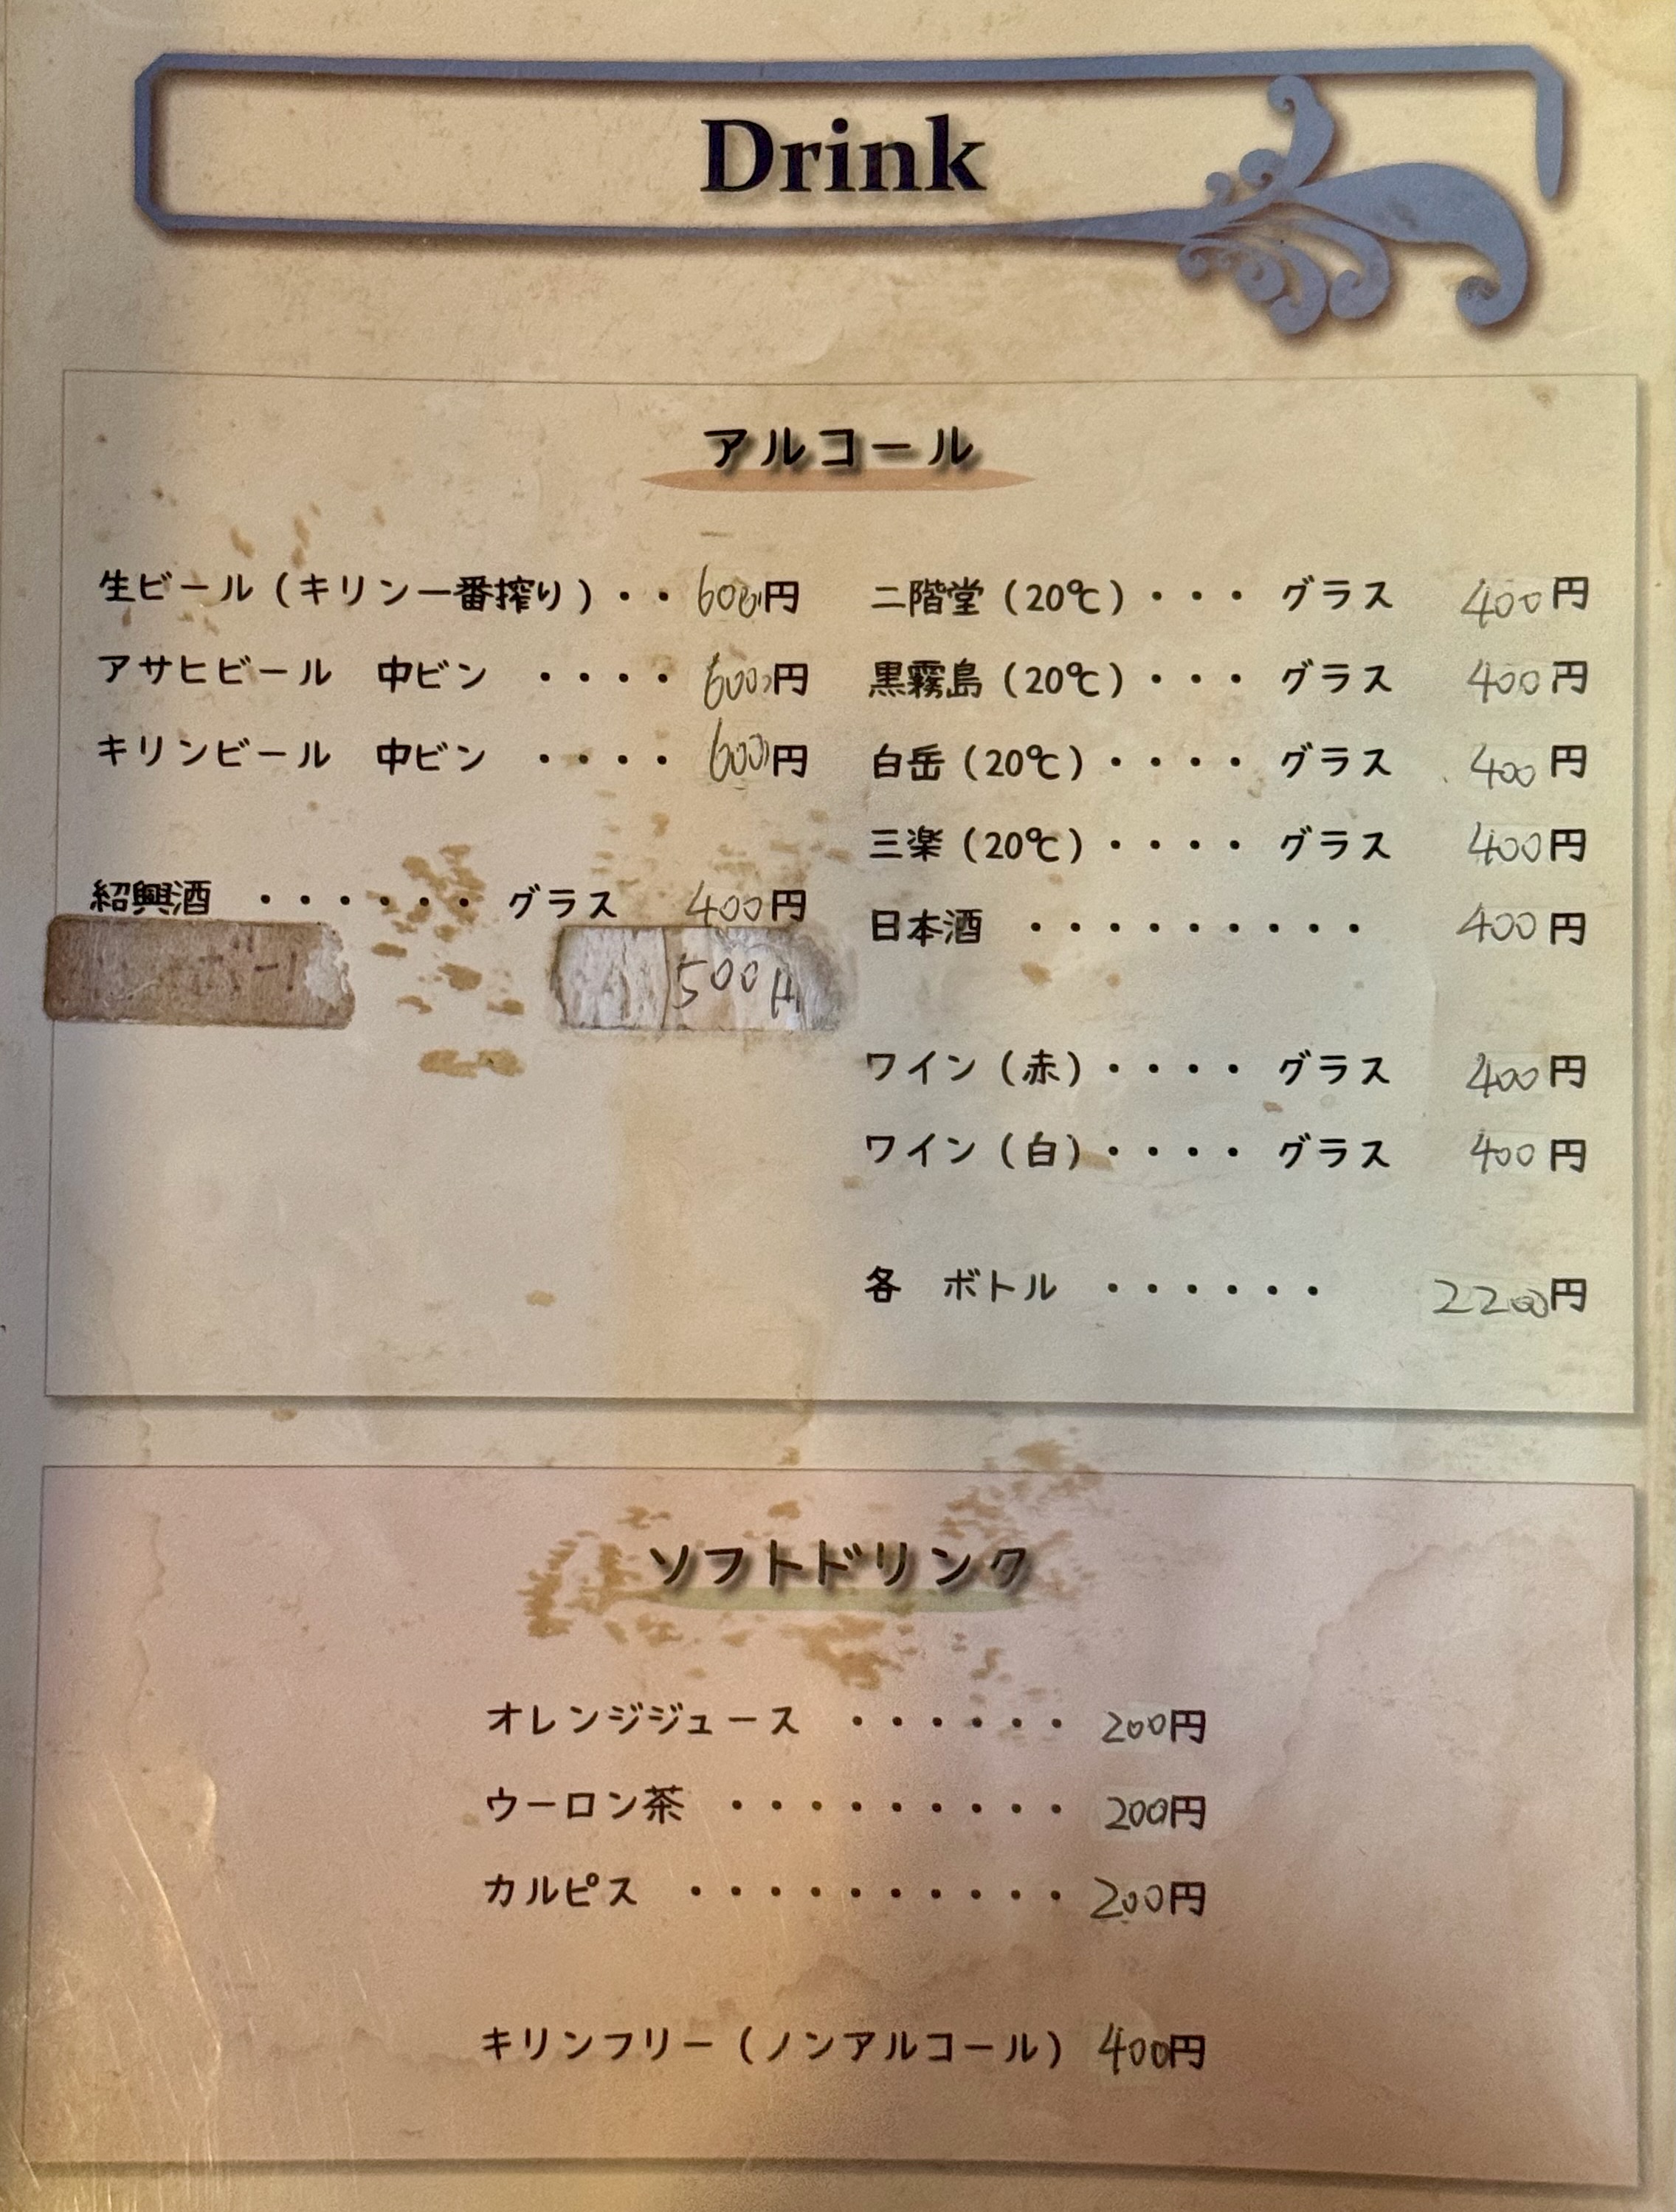 Drink
アルコール
生ビール（キリン一番搾り）・・600円
アサヒビール　中ビン　・・・・600円
キリンビール　中ビン　・・・・600円
紹興酒　・・・・・・グラス　400円
500円
二階堂（20℃）・・・グラス　400円
黒霧島（20℃）・・・グラス　400円
白岳（20℃）・・・・グラス　400円
三楽（20℃）・・・・グラス　400円
日本酒　・・・・・・・・・　400円
ワイン（赤）・・・・グラス　400円
ワイン（白）・・・・グラス　400円
各　ボトル　・・・・・・　2200円
ソフトドリンク
オレンジジュース　・・・・・・200円
ウーロン茶　・・・・・・・・・200円
カルピス　・・・・・・・・・・200円
キリンフリー（ノンアルコール）400円